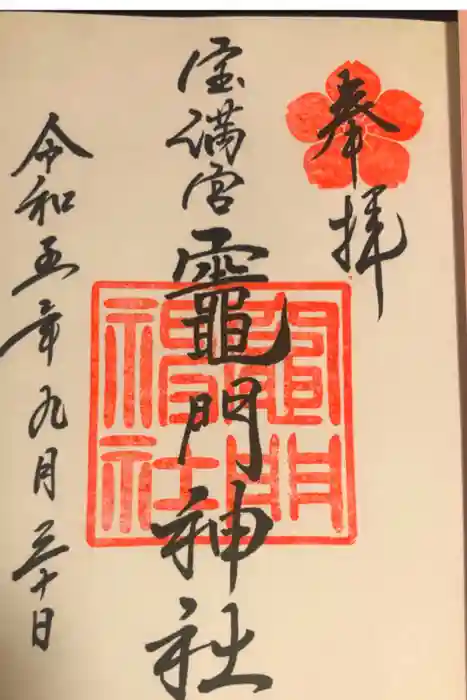 奉拝
宝満宮竈門神社
竈門神社
令和五年九月三十日